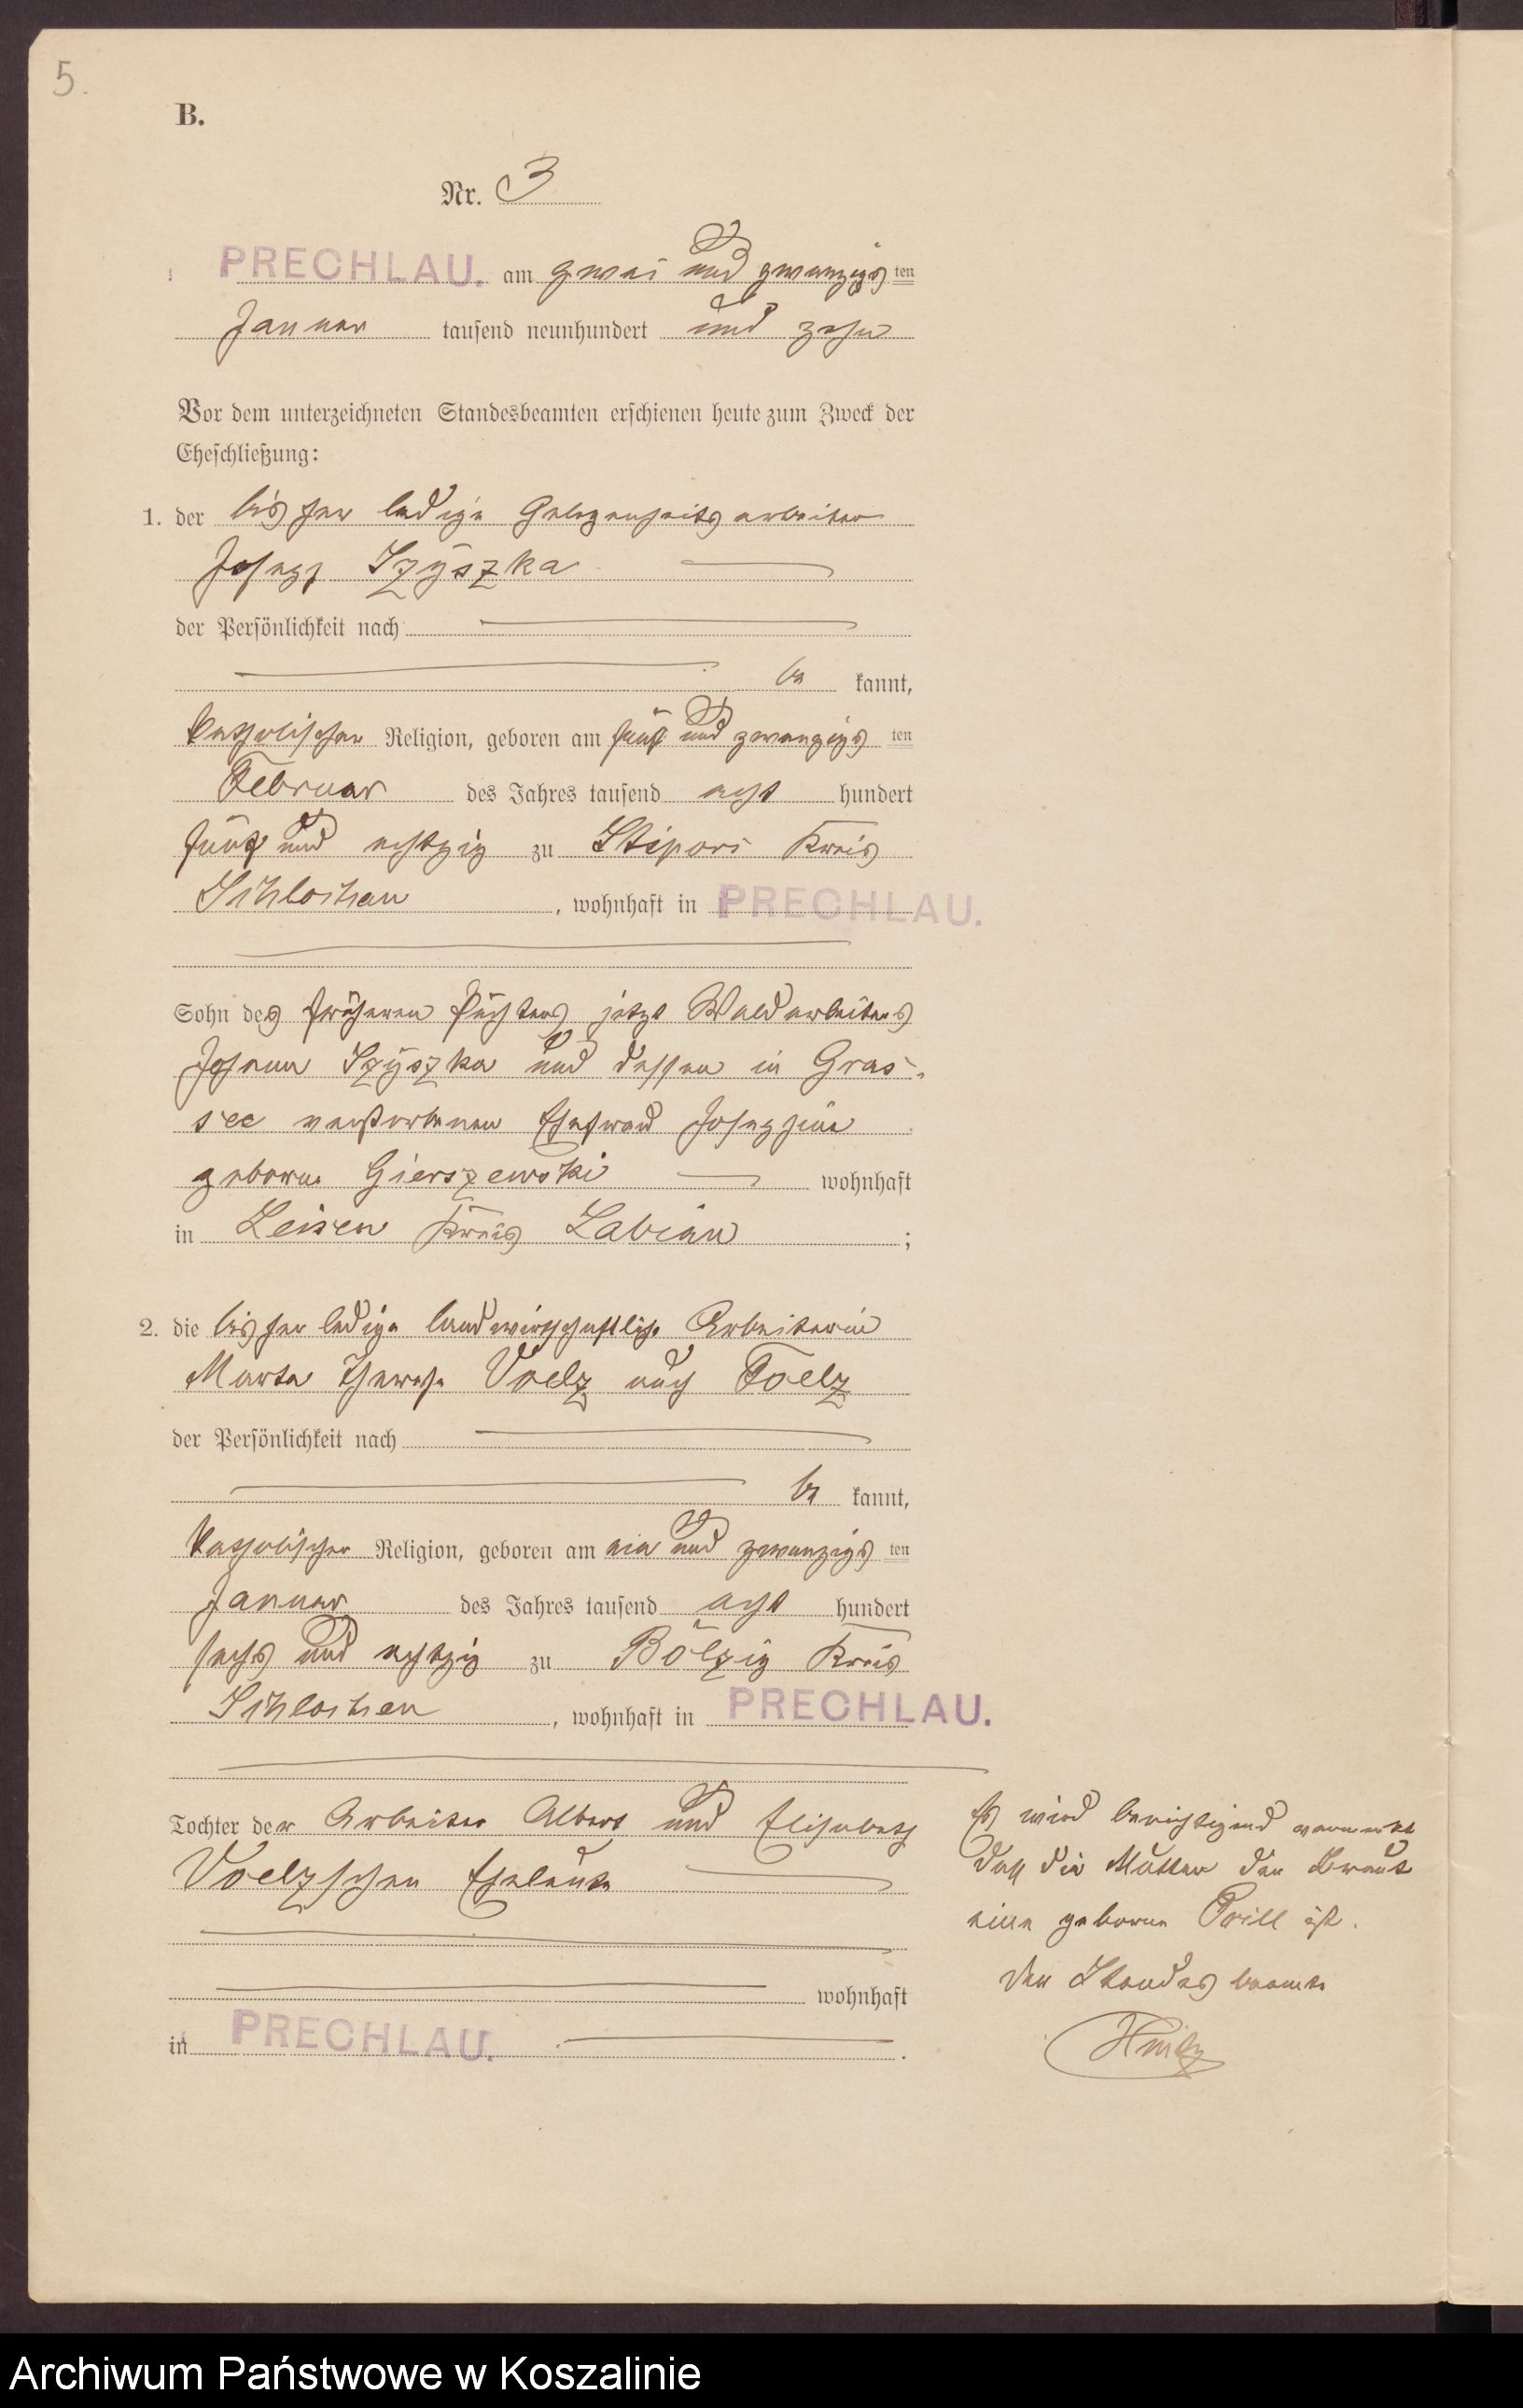 5.
B.
Nr. 3
PRECHLAU. am zwei und zwanzigsten
Januar tausend neunhundert und zehn
Vor dem unterzeichneten Standesbeamten erschienen heute zum Zweck der
Eheschließung:
1. der bisher ledige Gelegenheitsarbeiter
Josef Szyszka
der Persönlichkeit nach
be kannt,
katholischer Religion, geboren am fünf und zwanzigsten
Februar des Jahres tausend acht hundert
fünf und achtzig zu Stepori Kreis
Schlochau, wohnhaft in PRECHLAU.
Sohn des früheren Pächters jetzt Waldarbeiters
Johann Szyszka und dessen in Gras-
see verstorbenen Ehefrau Josephine
geborne Gierszewski wohnhaft
in Leisen Kreis Labiau;
2. die bisher ledige landwirtschaftliche Arbeiterin
Marta Therese Voelz auch Foelz
der Persönlichkeit nach
be kannt,
katholischer Religion, geboren am ein und zwanzigsten
Januar des Jahres tausend acht hundert
sechs und achtzig zu Bölzig Kreis
Schlochau, wohnhaft in PRECHLAU.
Tochter der Arbeiter Albert und Elisabeth
Voelzschen Eheleute
wohnhaft
in PRECHLAU.
Es wird berichtigend vermerkt
daß die Mutter der Braut
eine geborne Prill ist.
Der Standesbeamte
Archiwum Państwowe w Koszalinie